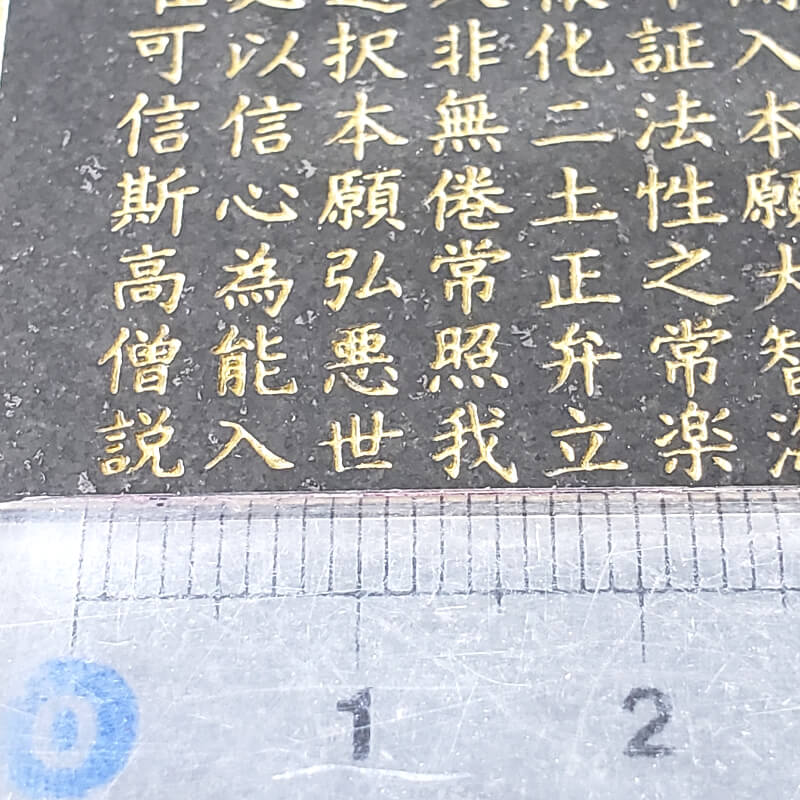 入本願大智海
証法性之常楽
化二土正弁立
非無倦常照我
択本願弘悪世
以信心為能入
可信斯高僧説
0 1 2